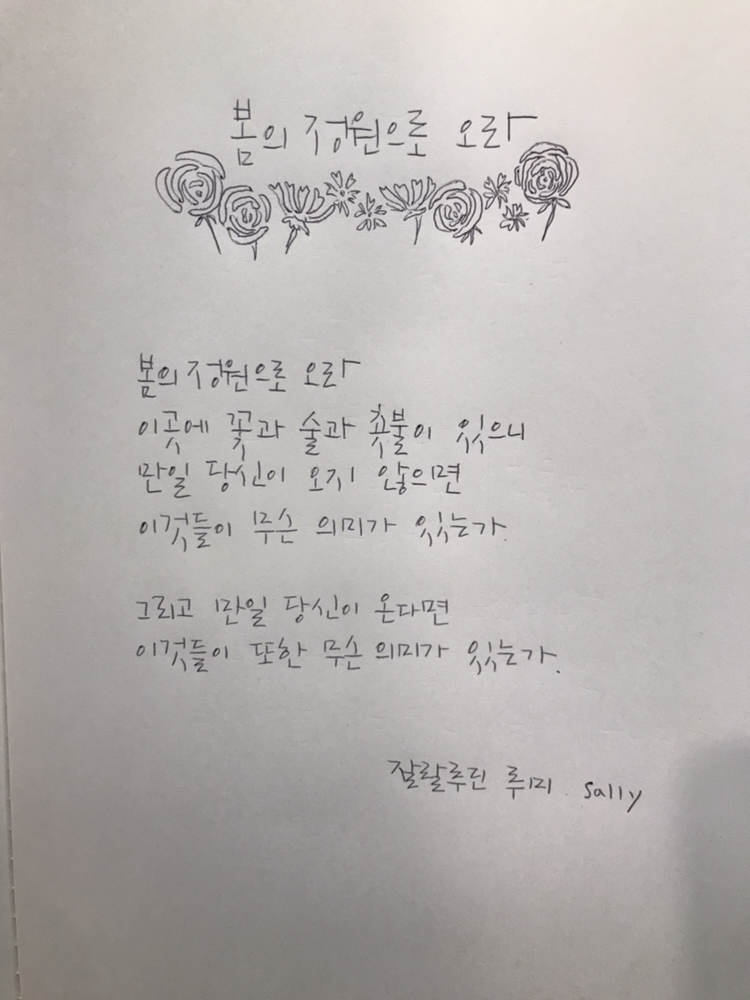 봄의 정원으로 오라
봄의 정원으로 오라
이곳에 꽃과 술과 촛불이 있으니
만일 당신이 오지 않으면
이것들이 무슨 의미가 있는가.
그리고 만일 당신이 온다면
이것들이 또한 무슨 의미가 있는가.
잘랄루딘 루미. sally